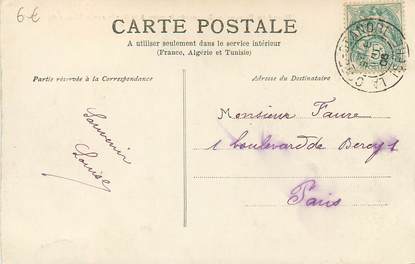 6€
CARTE POSTALE
A utiliser seulement dans le service intérieur
(France, Algérie et Tunisie)
Partie réservée à la Correspondance
Adresse du Destinataire
Souvenir
Louise
Monsieur Faure
1 boulevard de Bercy 1
Paris